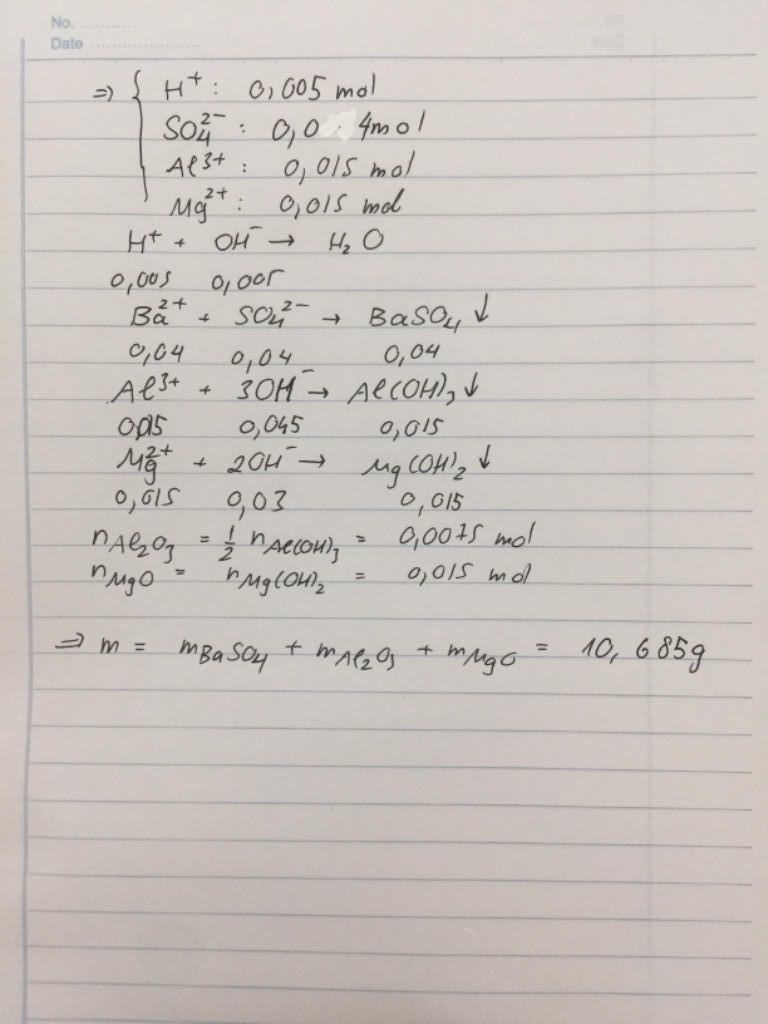 No. ............
Date ......................
⇒ { H⁺ : 0,005 mol
SO₄²⁻ : 0,0 4mol
Al³⁺ : 0,015 mol
Mg²⁺ : 0,015 mol
H⁺ + OH⁻ → H₂O
0,005 0,005
Ba²⁺ + SO₄²⁻ → BaSO₄ ↓
0,04 0,04 0,04
Al³⁺ + 3OH⁻ → Al(OH)₃ ↓
0,015 0,045 0,015
Mg²⁺ + 2OH⁻ → Mg(OH)₂ ↓
0,015 0,03 0,015
nAl₂O₃ = 1/2 nAl(OH)₃ = 0,0075 mol
nMgO = nMg(OH)₂ = 0,015 mol
⇒ m = mBaSO₄ + mAl₂O₃ + mMgO = 10,685g